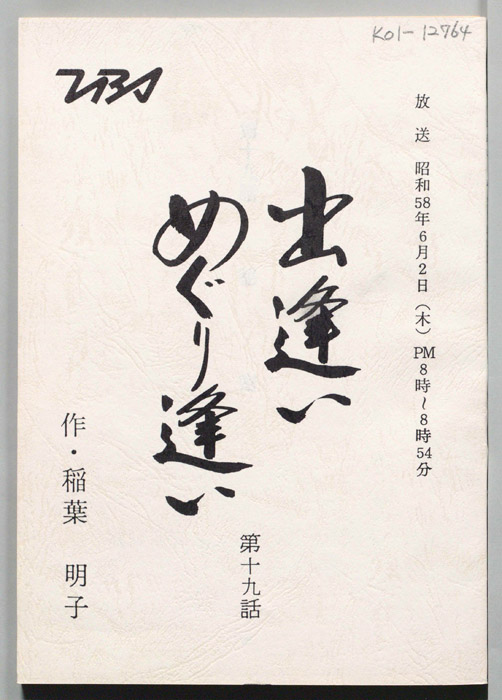 K01-12764
TBS
放送 昭和58年6月2日(木) PM8時~8時54分
出逢い
めぐり逢い
第十九話
作・稲葉 明子